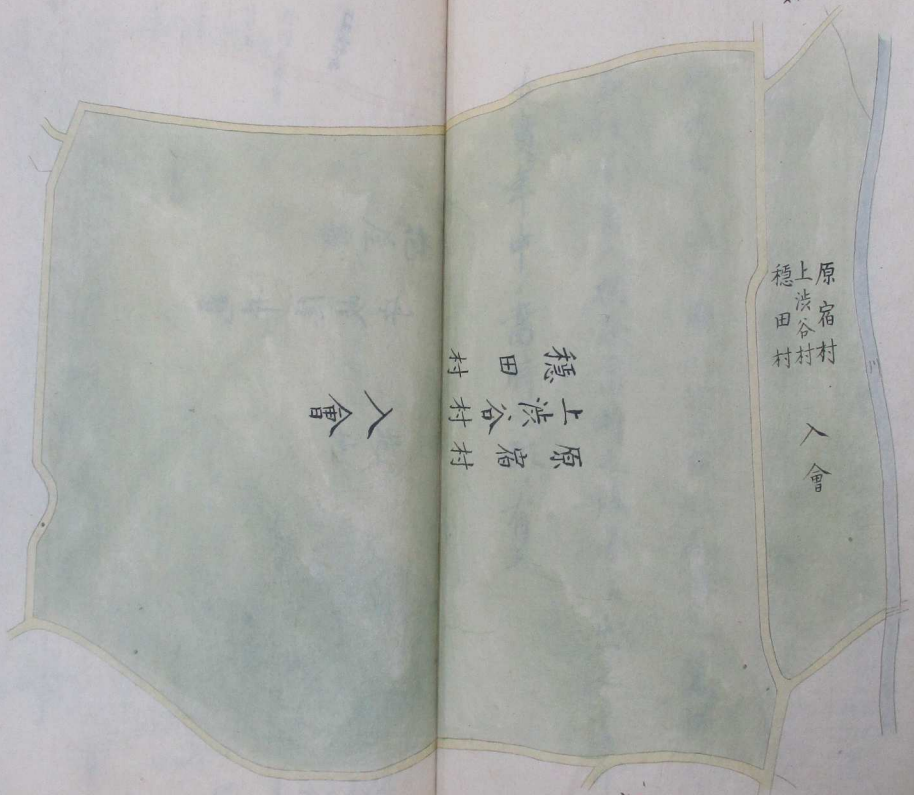 原宿村
上渋谷村
穏田村
入會
原宿村
上渋谷村
穏田村
入會